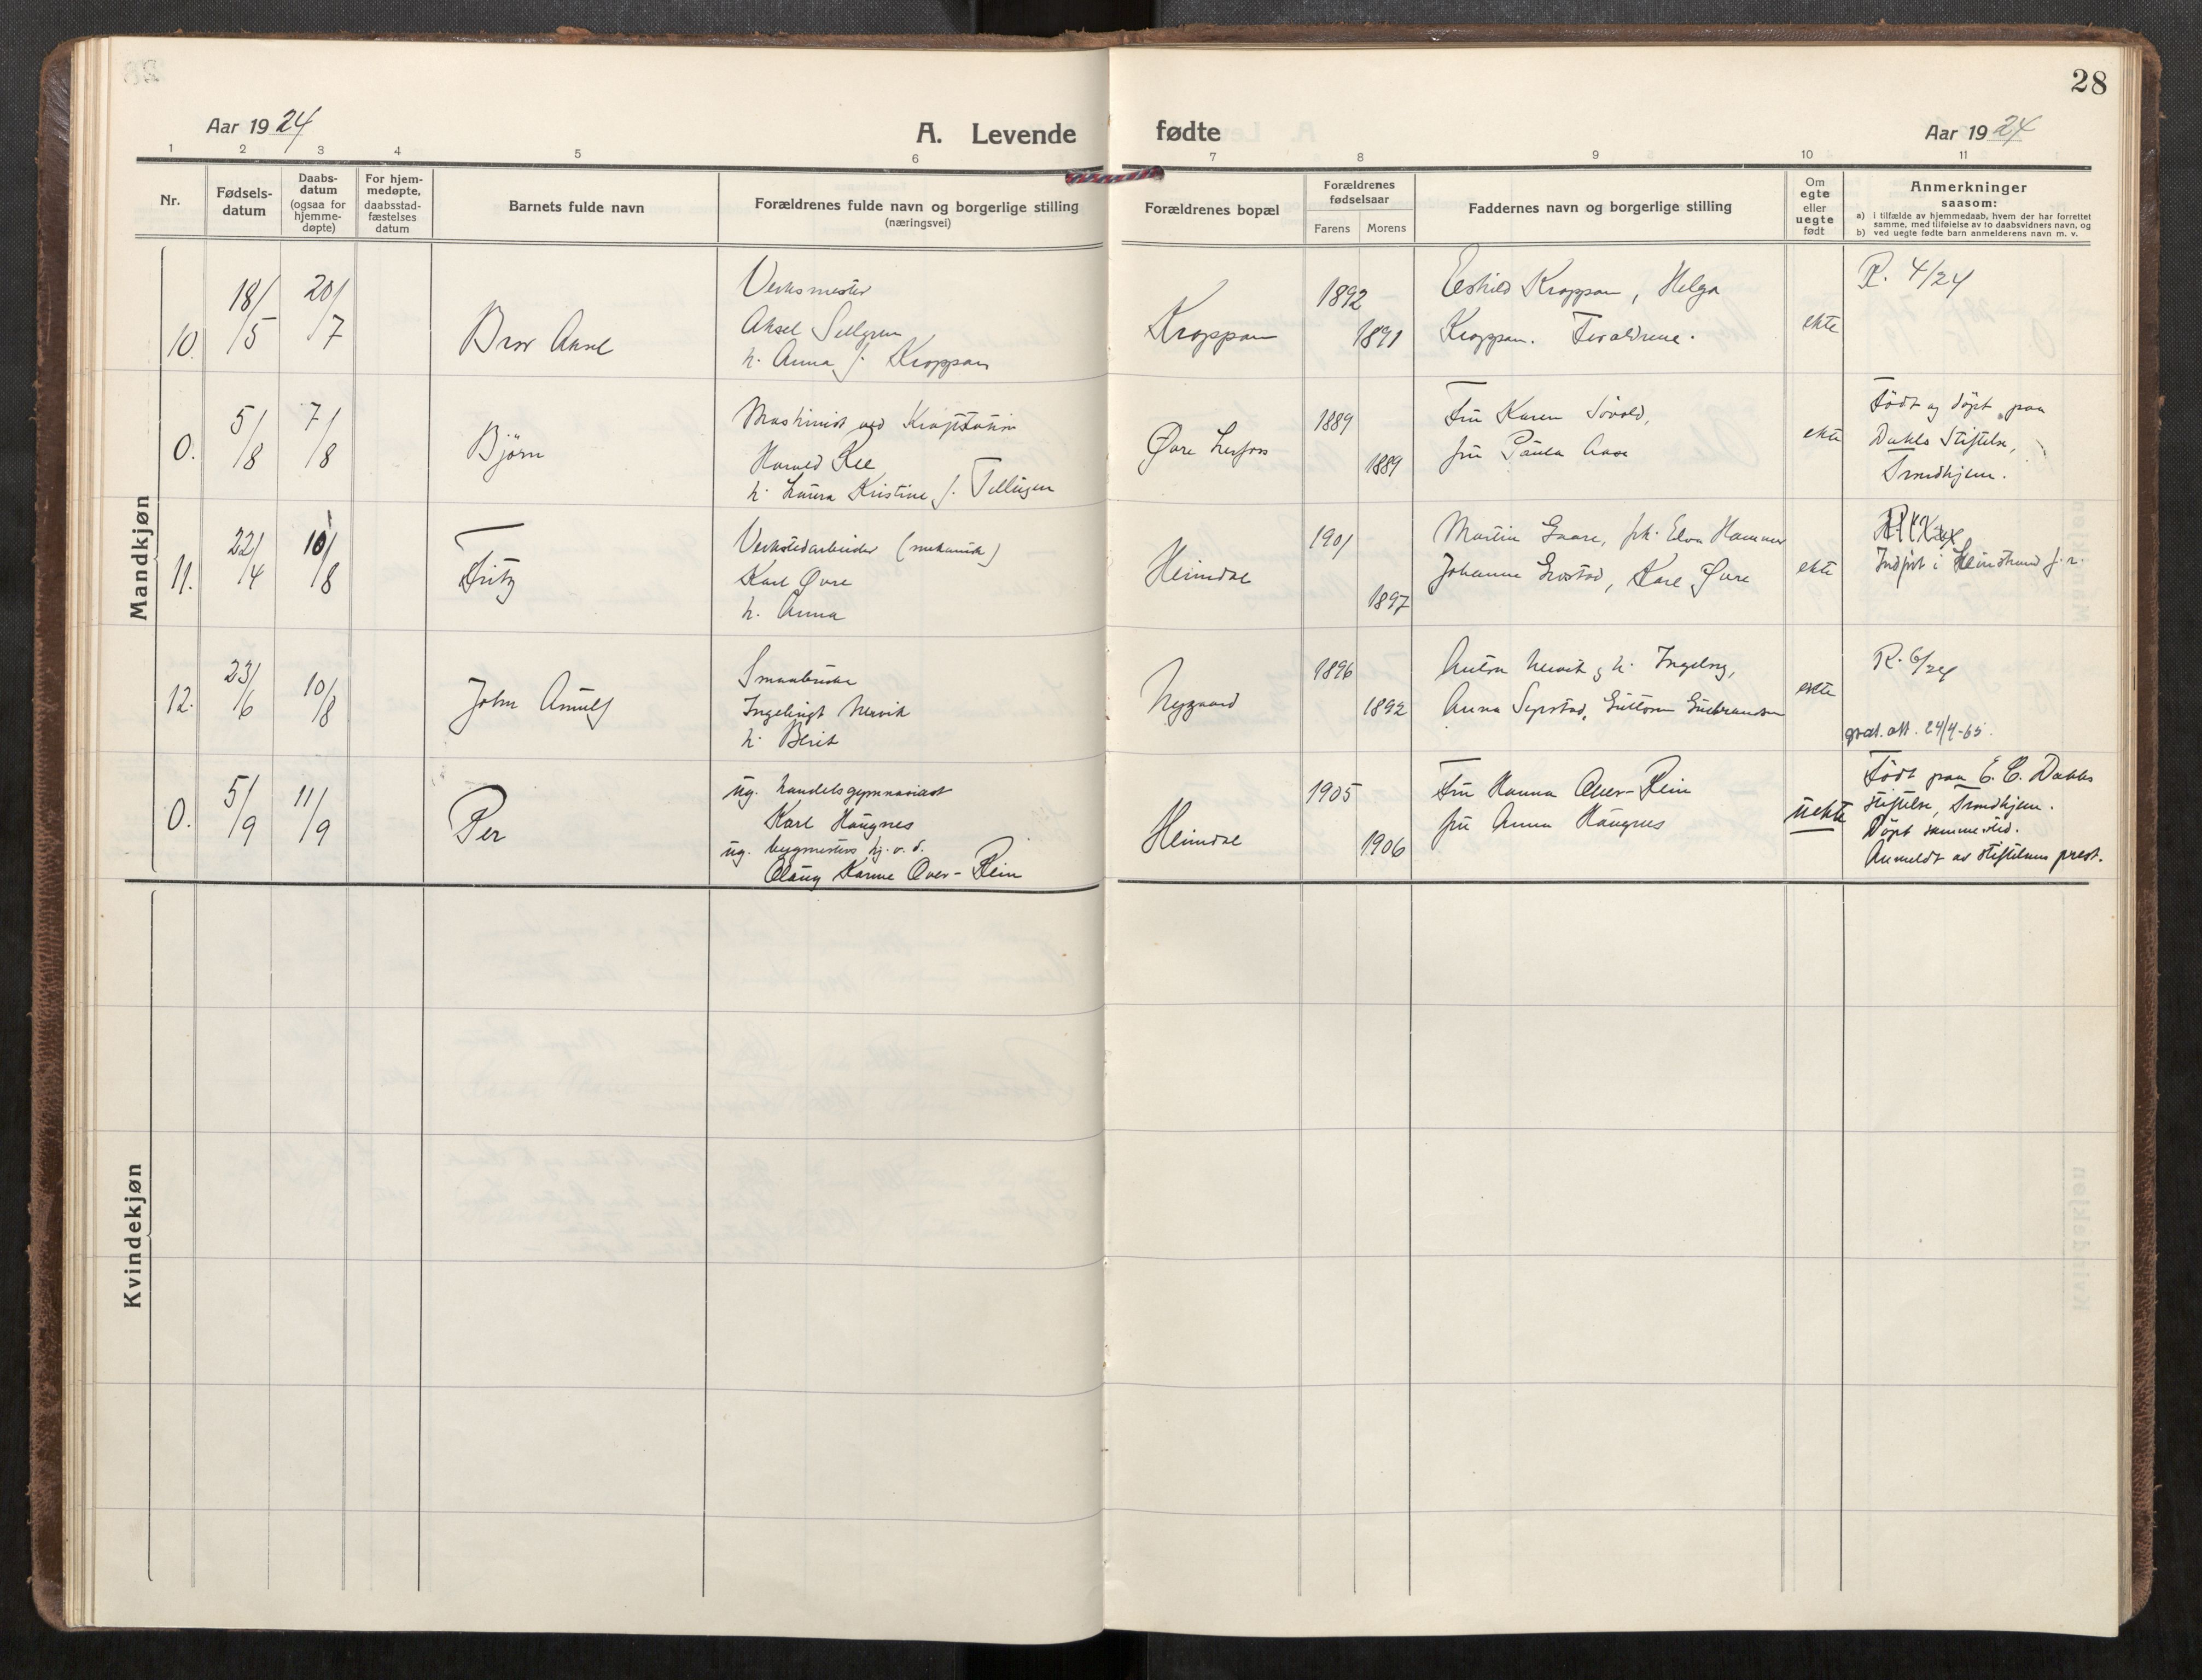 28
Aar 1924
A. Levende fødte
Aar 1924
1 2 3 4 5 6 7 8 9 10 11
Nr.
Fødsels-
datum
Daabs-
datum
(ogsaa for
hjemme-
døpte)
For hjem-
medøpte,
daabsstad-
fæstelses
datum
Barnets fulde navn
Forældrenes fulde navn og borgerlige stilling
(næringsvei)
Forældrenes bopæl
Forældrenes
fødselsaar
Farens Morens
Faddernes navn og borgerlige stilling
Om
egte
eller
uegte
født
Anmerkninger
saasom:
a) i tilfælde av hjemmedaab, hvem der har forrettet
samme, med tilføielse av to daabsvidners navn, og
b) ved uegte fødte barn anmelderens navn m. v.
Mandkjøn
10. 18/5 20/7
Verksmester
Aksel Sellgren
h. Anna f. Kroppan
Kroppan
1892
1891
Kroppan, Helga
Kroppan. Forældrene.
ekte
R. 4/24
0. 5/8 7/8
Bjørn
Maskinist ved
Harald
h. Laura Kristine f.
Øvre Lerfoss
1889
1889
Fru Karen
fru Paula Aase
ekte
Født og døpt paa
Dahls Stiftelse,
Trondhjem.
11. 22/4 10/8
Fritz
Verkstedarbeider (mekanisk)
Karl Øvre
h. Anna
Heimdal
1901
1897
Martin Gaare, frk. Hammer
Johanna Karl Øvre
ekte
Indført i f. r.
12. 23/6 10/8
John Arnulf
Smaabruker
Ingebrigt
h. Berit
Nygaard
1896
1892
Anton og h. Ingeborg,
Anna Guttorm Gudbrandsen
ekte
R. 6/24
att. 24/4-65.
0. 5/9 11/9
Per
ug. handelsgymnasiast
Karl Haugnes
ug. bygmesters hj. v. d.
Olaug Karine Over-Rein
Heimdal
1905
1906
Fru Hanna Over-Rein
fru Anna Haugnes
uekte
Født paa E. C. Dahls
stiftelse, Trondhjem.
Døpt sammested.
Anmeldt av stiftelsens prest.
Kvindekjøn